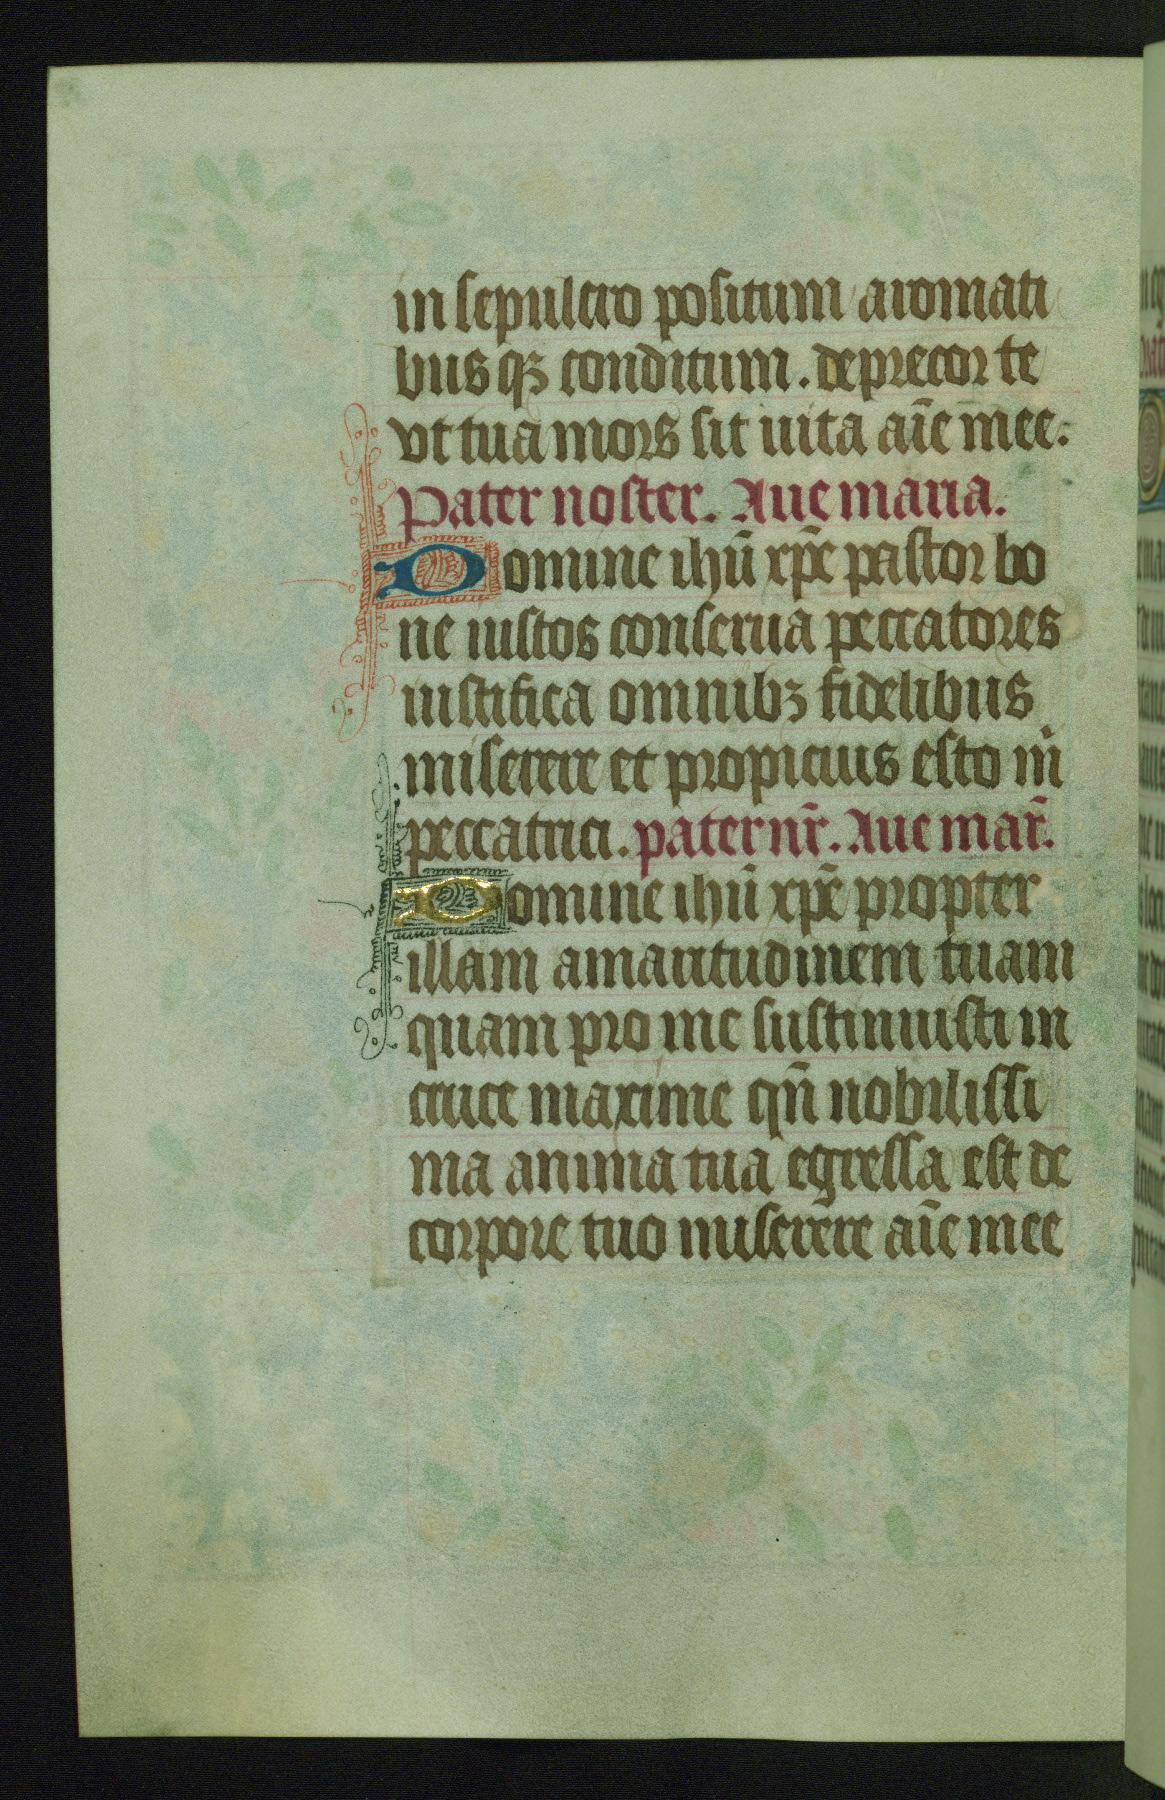 in sepulcro positum aromati
bus qꝫ conditum. deprecor te
vt tua mors sit uita aīe mee.
Pater noster. Aue maria.
Domine ihū xp̄e pastor bo
ne iustos conserua peccatores
iustifica omnibꝫ fidelibus
miserere et propicius esto m̄
peccatrici. pater nr̄. Aue mar̄.
Domine ihū xp̄e propter
illam amaritudinem tuam
quam pro me sustinuisti in
cruce maxime qn̄ nobilissi
ma anima tua egressa est de
corpore tuo miserere aīe mee